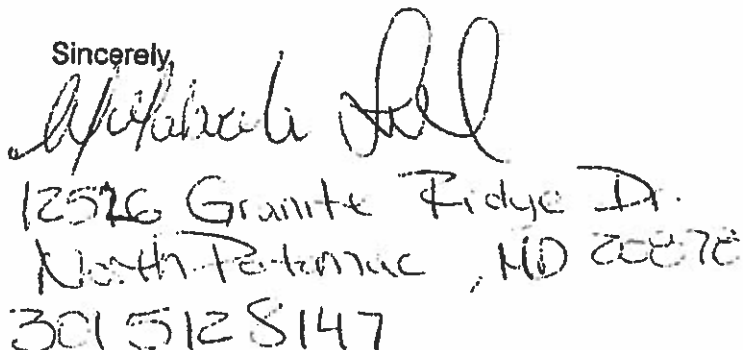 Sincerely,
12526 Granite Ridge Dr.
North Potomac, MD 20878
301 512 8147